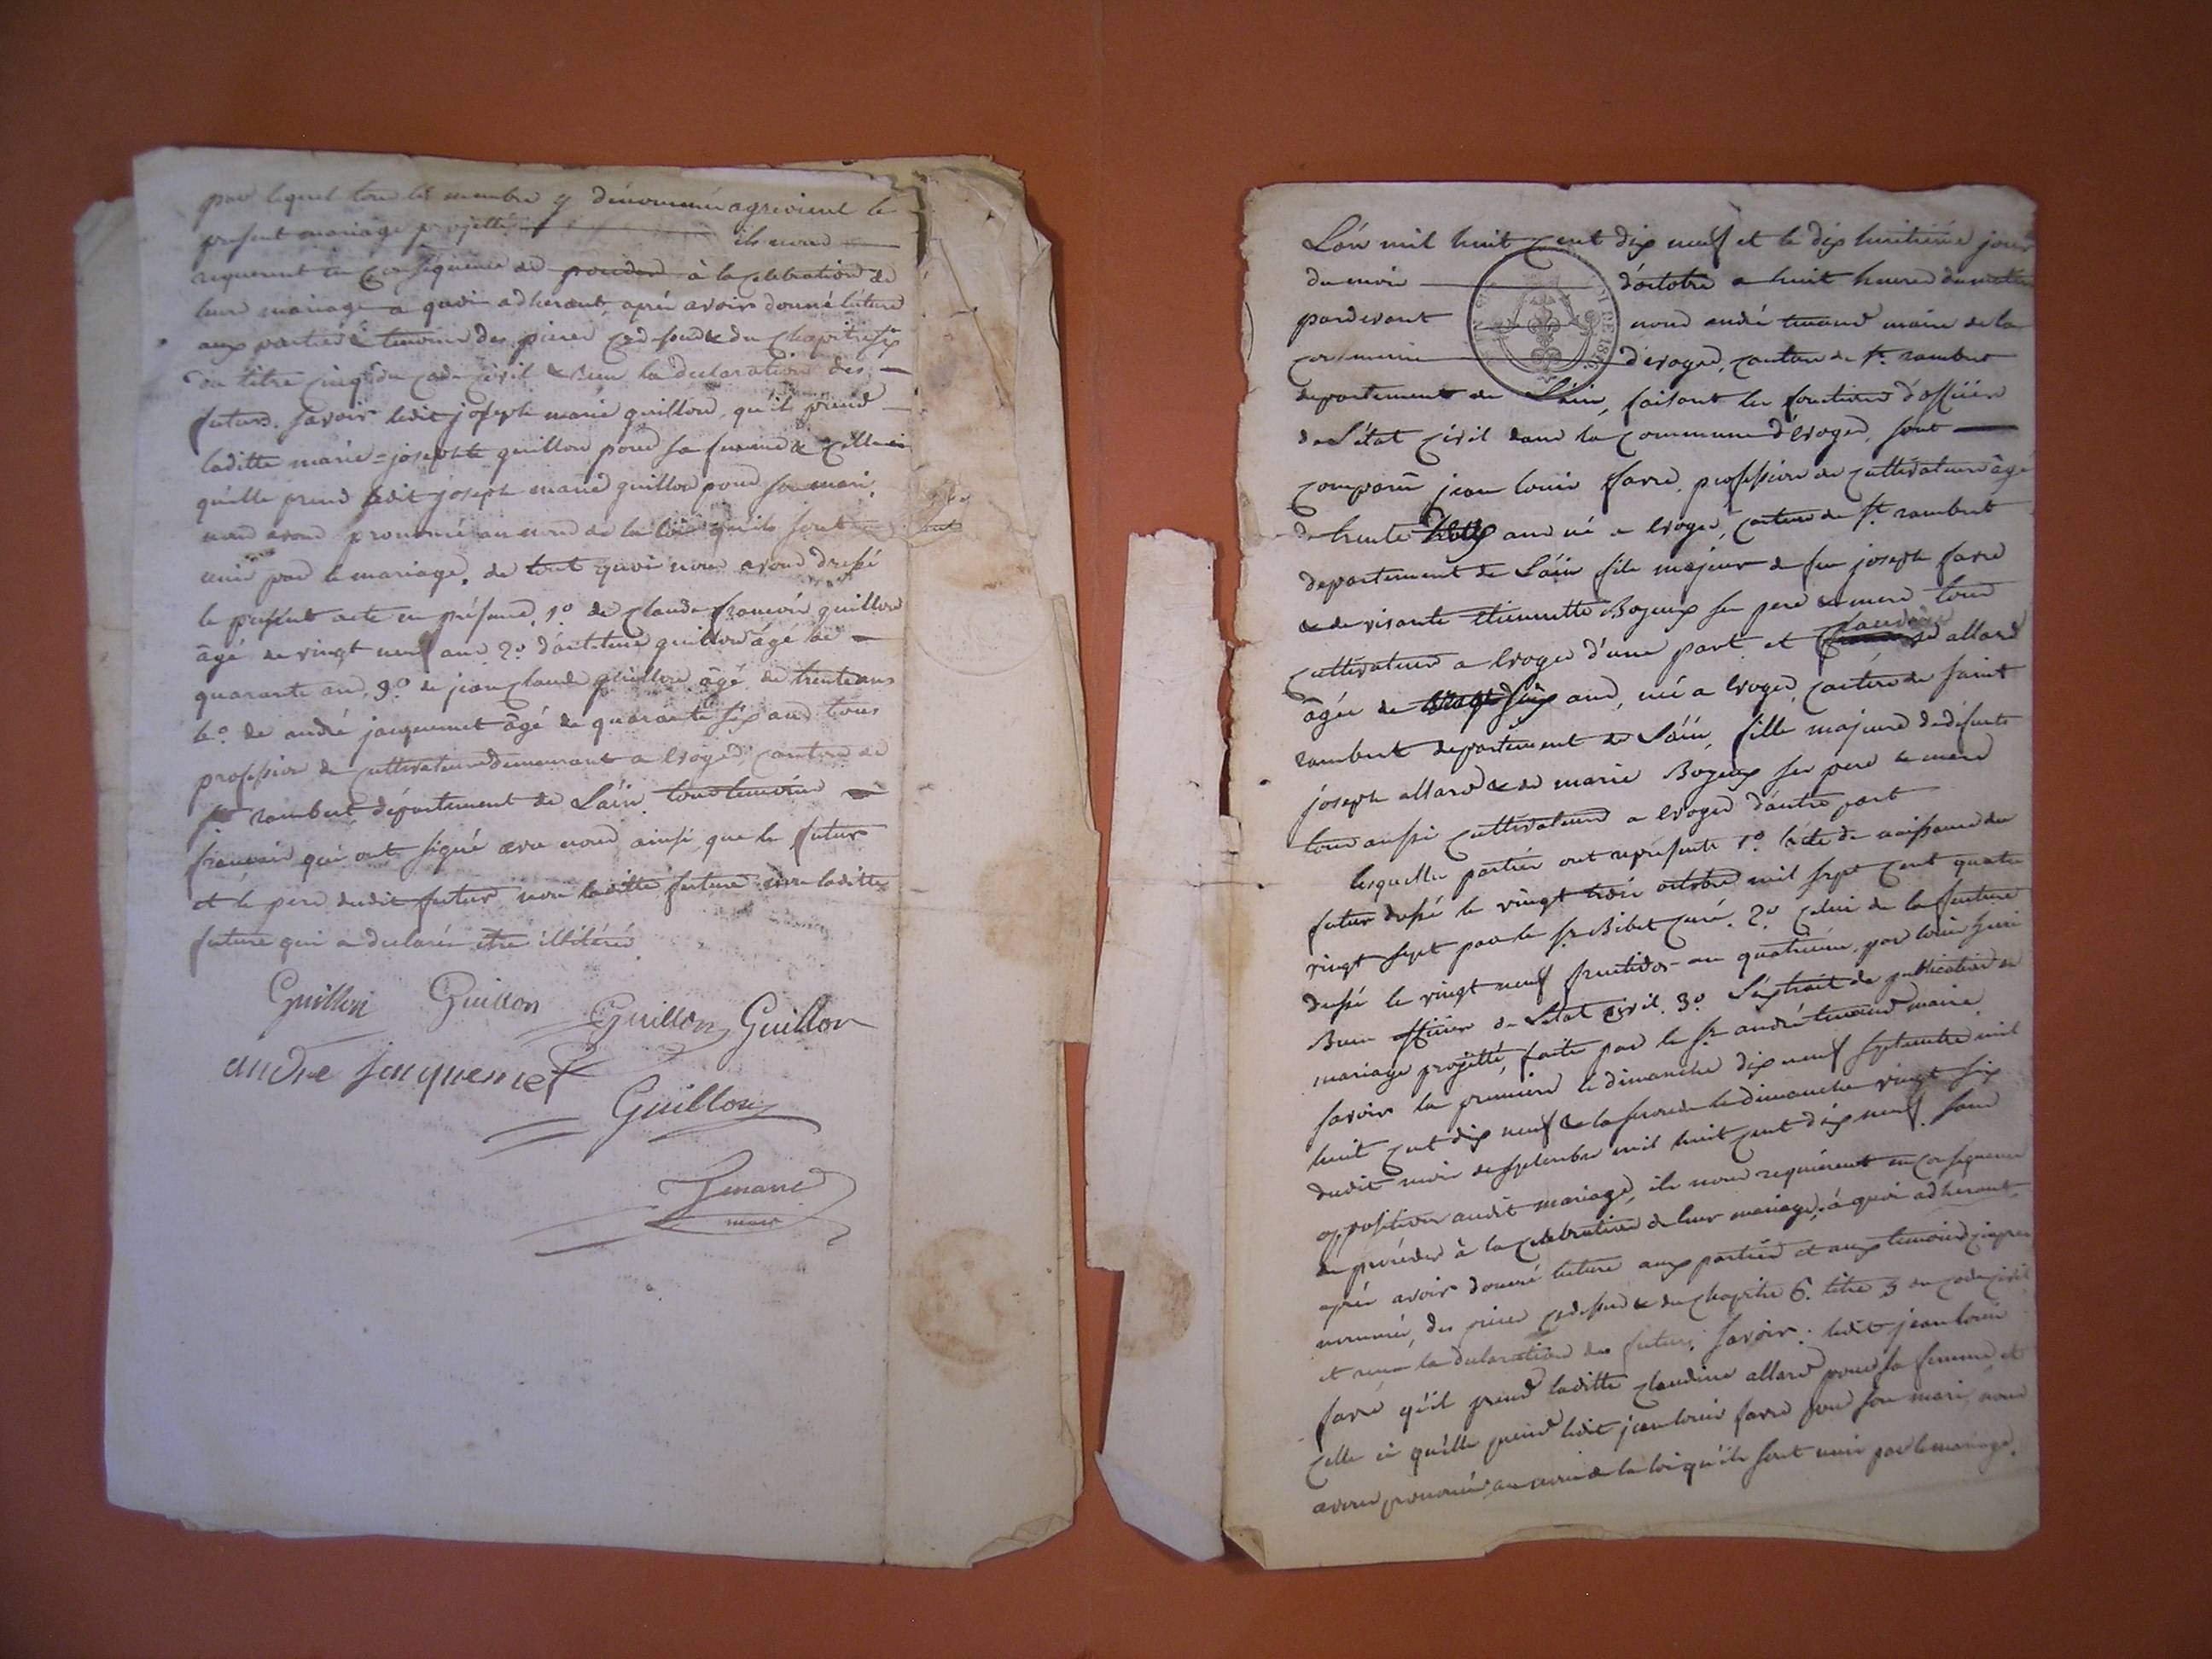 par lequel tous les membre y dénommé agreoient le
present mariage projetté ils nous
requerent en consequence de proceder à la celebration de
leur mariage a quoi adherant, aprés avoir donné lecture
aux partie & temoins des pieces ced-susd & du chapitre six
du titre cinq du code civil & reçu la declaration des
futurs. savoir ledit joseph marie guillon, qu'il prend
laditte marie=josephte guillon pour sa femme & celle ci
qu'elle prend ledit joseph marie guillon pour son mari,
nous avons prononcé au nom de la loi qu'ils sont
unis par le mariage. de tout quoi nous avons dressé
le present acte en présence, 1º de claude françois guillon
âgé de vingt neuf ans 2º d'antoine guillon âgé de
quarante ans, 3º de jean claude guillon âgé de trente ans
4º de andré jacquemet âgé de quarante six ans tous
profession de cultivateurs demeurant a evoges canton de
st rambert département de L'ain tous temoins
francais qui ont signé avec nous ainsi que le futur
et le pere dudit futur non laditte future non laditte
future qui a declarée être illiterée
Guillon Guillon Guillon Guillon
andre jacquemet
Guillon
Tenand
maire
L'an mil huit cent dix neuf et le dix huitiéme jour
du mois d'octobre a huit heures du matin
pardevant nous andré tenand maire de la
commune d'evoges, canton de st. rambert
departement de L'ain, faisant les fonctions d'officier
de L'état civil dans la commune d'évoges, sont
comparu jean louis favre, profession de cultivateur âgé
de trente ans né a evoges, canton de st. rambert
departement de L'ain fils majeur de feu joseph favre
& de vivante etiennette Bozeux ses pere & mere tous
claudine
cultivateurs a evoges d'une part et allard
âgée de ans, née a evoges, canton de saint
rambert departement de L'ain, fille majeure de defunts
joseph allard & de marie Bozeux ses pere & mere
tous aussi cultivateurs a evoges d'autre part
lesquelles parties ont representé 1º. l'acte de naissance du
futur dressé le vingt trois octobre mil sept cent quatre
vingt sept par le sr. Bibet curé. 2º. celui de la future
dressé le vingt neuf fructidor an quatrieme, par louis
Buen officier de l'etat civil. 3º. L'extrait de publication de
mariage projetté, faite par le sr. andré tenand maire.
savoir la premiere le dimanche dix neuf septembre mil
huit cent dix neuf & la seconde le dimanche vingt six
dudit mois de septembre mil huit cent dix neuf. sans
opposition audit mariage, ils nous requierent en consequence
de proceder à la celebration de leur mariage, à quoi adherant,
aprés avoir donné lecture aux parties et aux temoins ci aprés
nommés, des pieces cedessus & du chapitre 6. titre 5 du code civil
et reçu la declaration des futurs, savoir: ledit jean louis
favre qu'il prend laditte claudine allard pour sa femme, et
celle ci qu'elle prend ledit jean louis favre pour son mari, nous
avons prononcé au nom de la loi qu'ils sont unis par le mariage.